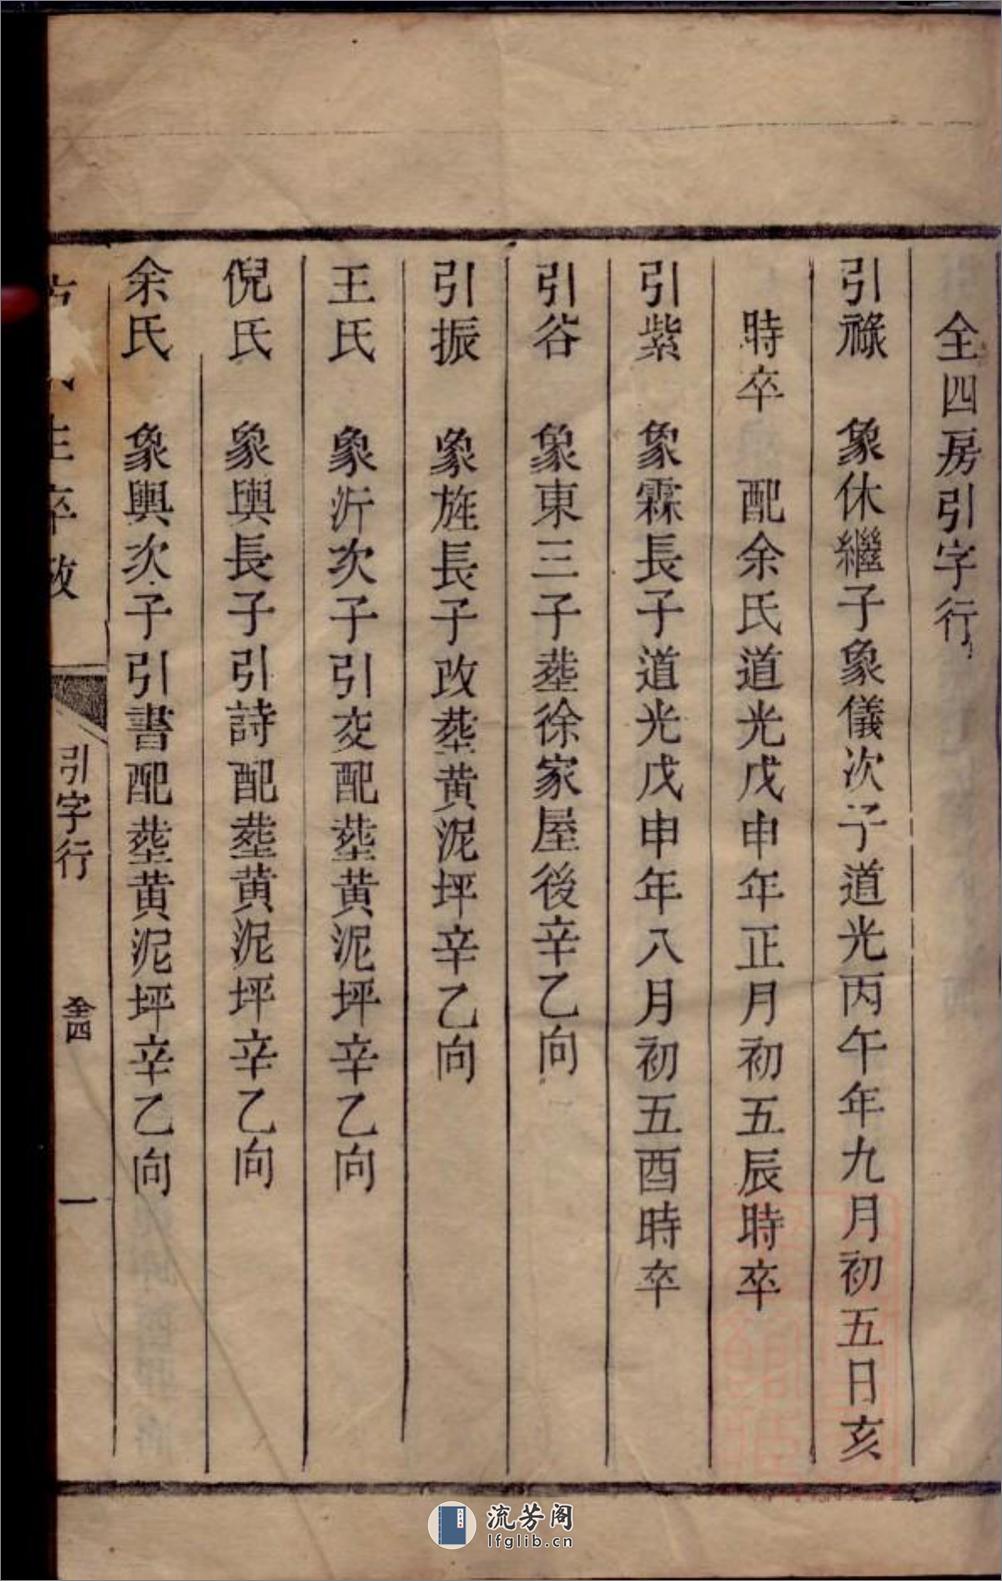 全四房引字行
引祿　象休繼子象儀次子道光丙午年九月初五日亥
時卒　配余氏道光戊申年正月初五辰時卒
引紫　象霖長子道光戊申年八月初五酉時卒
引谷　象東三子塟徐家屋後辛乙向
引振　象旌長子改塟黄泥坪辛乙向
王氏　象沂次子引交配塟黄泥坪辛乙向
倪氏　象輿長子引詩配塟黄泥坪辛乙向
余氏　象輿次子引書配塟黄泥坪辛乙向
生卒攷
引字行
全四
一
流芳阁
lfglib.cn